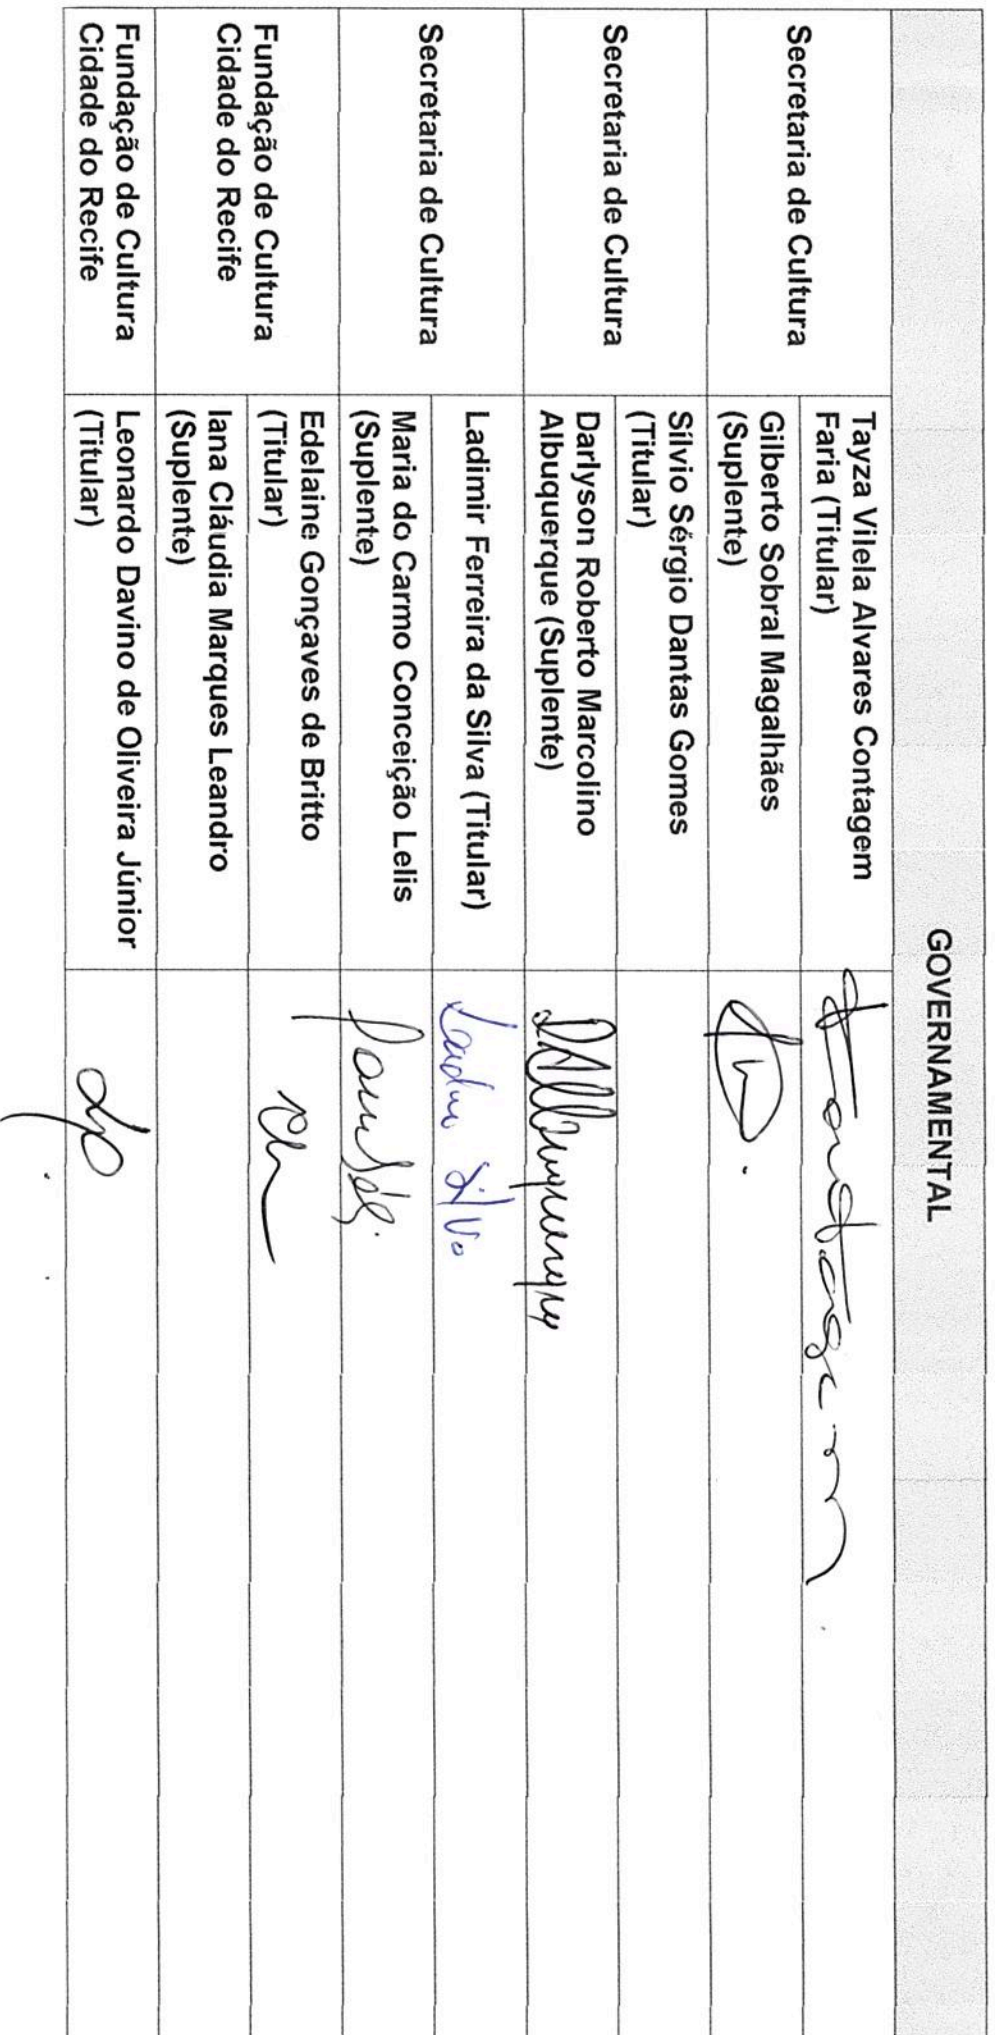 GOVERNAMENTAL
Secretaria de Cultura
Tayza Vilela Alvares Contagem
Faria (Titular)
Contagem
Gilberto Sobral Magalhães
(Suplente)
Secretaria de Cultura
Sílvio Sérgio Dantas Gomes
(Titular)
Darlyson Roberto Marcolino
Albuquerque (Suplente)
DAlbuquerque
Secretaria de Cultura
Ladimir Ferreira da Silva (Titular)
Silva
Maria do Carmo Conceição Lelis
(Suplente)
Fundação de Cultura
Cidade do Recife
Edelaine Gonçaves de Britto
(Titular)
Iana Cláudia Marques Leandro
(Suplente)
Fundação de Cultura
Cidade do Recife
Leonardo Davino de Oliveira Júnior
(Titular)